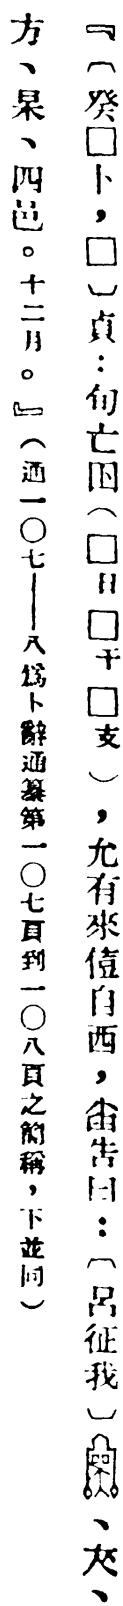 『〔癸□卜，□〕貞：旬亡𡆥（□日□干□支），允有來㛸自西，𠧞告曰：〔呂征我〕、夾、
方、杲、四邑。十二月。』（通一〇七——八爲卜辭通纂第一〇七頁到一〇八頁之簡稱，下並同）